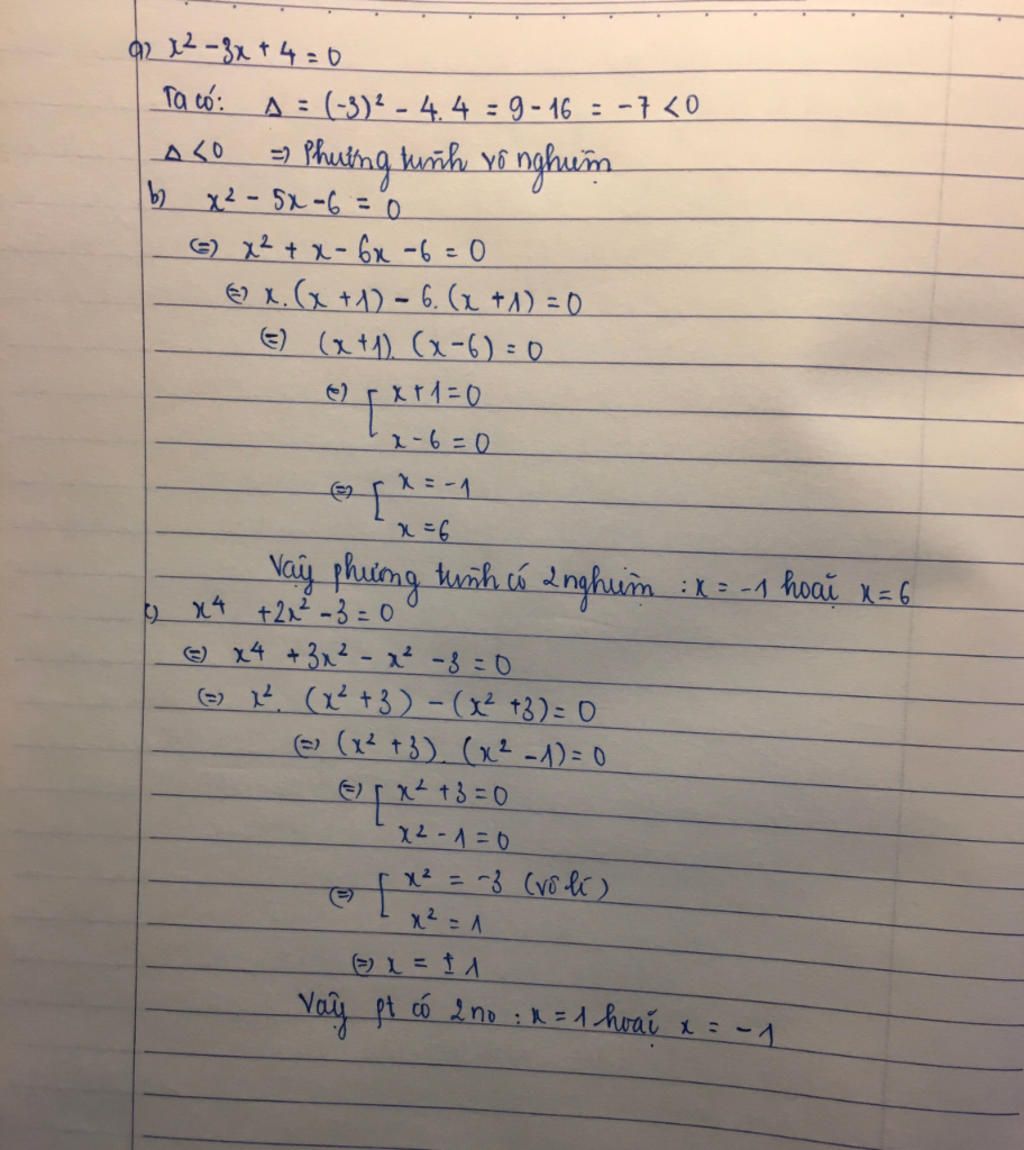 a) x² - 3x + 4 = 0
Ta có: Δ = (-3)² - 4.4 = 9 - 16 = -7 < 0
Δ < 0 => Phương trình vô nghiệm
b) x² - 5x - 6 = 0
(=) x² + x - 6x - 6 = 0
(=) x.(x + 1) - 6.(x + 1) = 0
(=) (x+1).(x-6) = 0
(=) [ x + 1 = 0
x - 6 = 0
(=) [ x = -1
x = 6
Vậy phương trình có 2 nghiệm : x = -1 hoặc x = 6
c) x⁴ + 2x² - 3 = 0
(=) x⁴ + 3x² - x² - 3 = 0
(=) x². (x² + 3) - (x² + 3) = 0
(=) (x² + 3). (x² - 1) = 0
(=) [ x² + 3 = 0
x² - 1 = 0
(=) [ x² = -3 (vô lí)
x² = 1
(=) x = ± 1
Vậy pt có 2 no : x = 1 hoặc x = -1